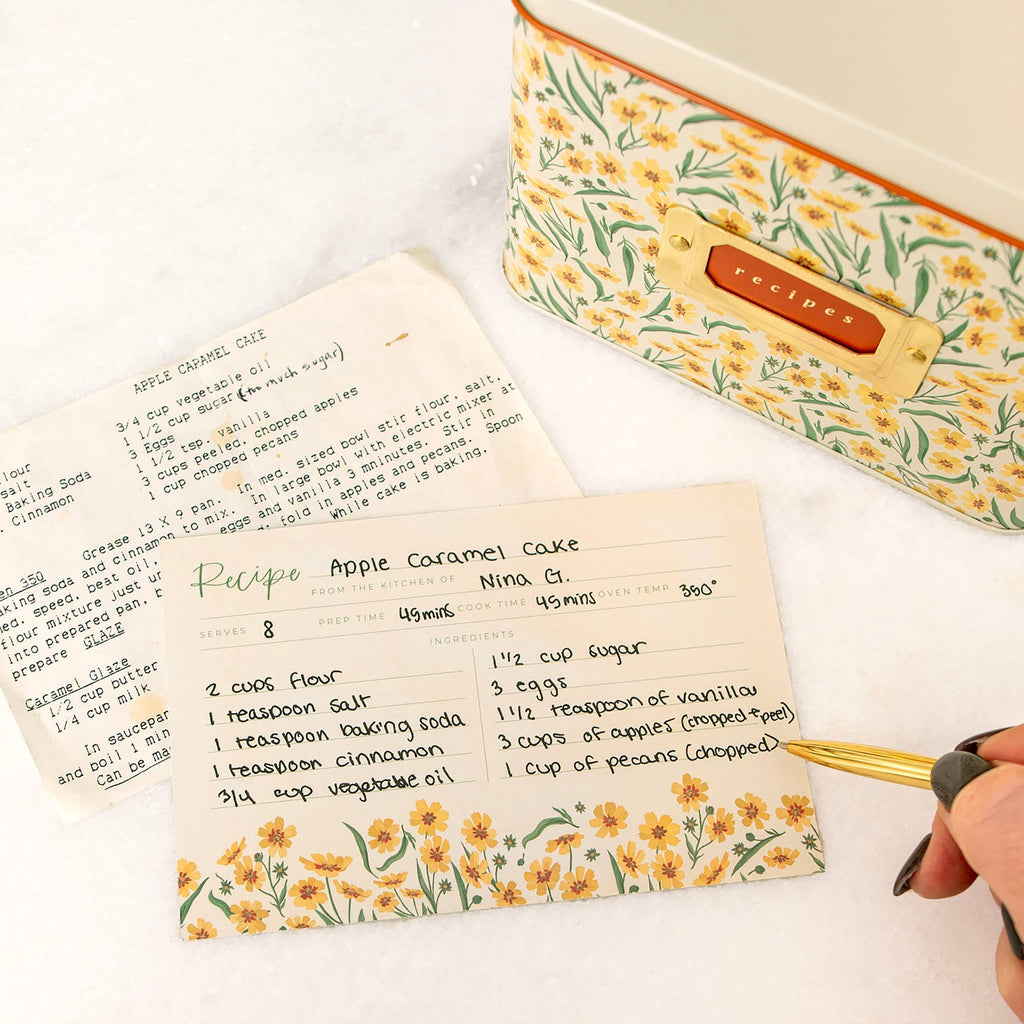 recipes
APPLE CARAMEL CAKE
3/4 cup vegetable oil
1 1/2 cup sugar (too much sugar)
3 Eggs
1 1/2 tsp. vanilla
3 cups peeled, chopped apples
1 cup chopped pecans
salt
Baking Soda
Cinnamon
Grease 13 X 9 pan. In med. sized bowl stir flour, salt,
aking soda and cinnamon to mix. In large bowl with electric mixer at
ed. speed, beat oil, eggs and vanilla 3 mninutes. Stir in
flour mixture just un fold in apples and pecans. Spoon
into prepared pan, b While cake is baking,
prepare GLAZE
Caramel Glaze
1/2 cup butter
1/4 cup milk
In saucepan
and boil 1 min
Can be ma
Recipe Apple Caramel Cake
FROM THE KITCHEN OF Nina G.
SERVES 8 PREP TIME 45mins COOK TIME 45mins OVEN TEMP 350°
INGREDIENTS
2 cups flour
1 teaspoon salt
1 teaspoon baking soda
1 teaspoon cinnamon
3/4 cup vegetable oil
1 1/2 cup sugar
3 eggs
1 1/2 teaspoon of vanilla
3 cups of apples (cropped + peel)
1 cup of pecans (chopped)